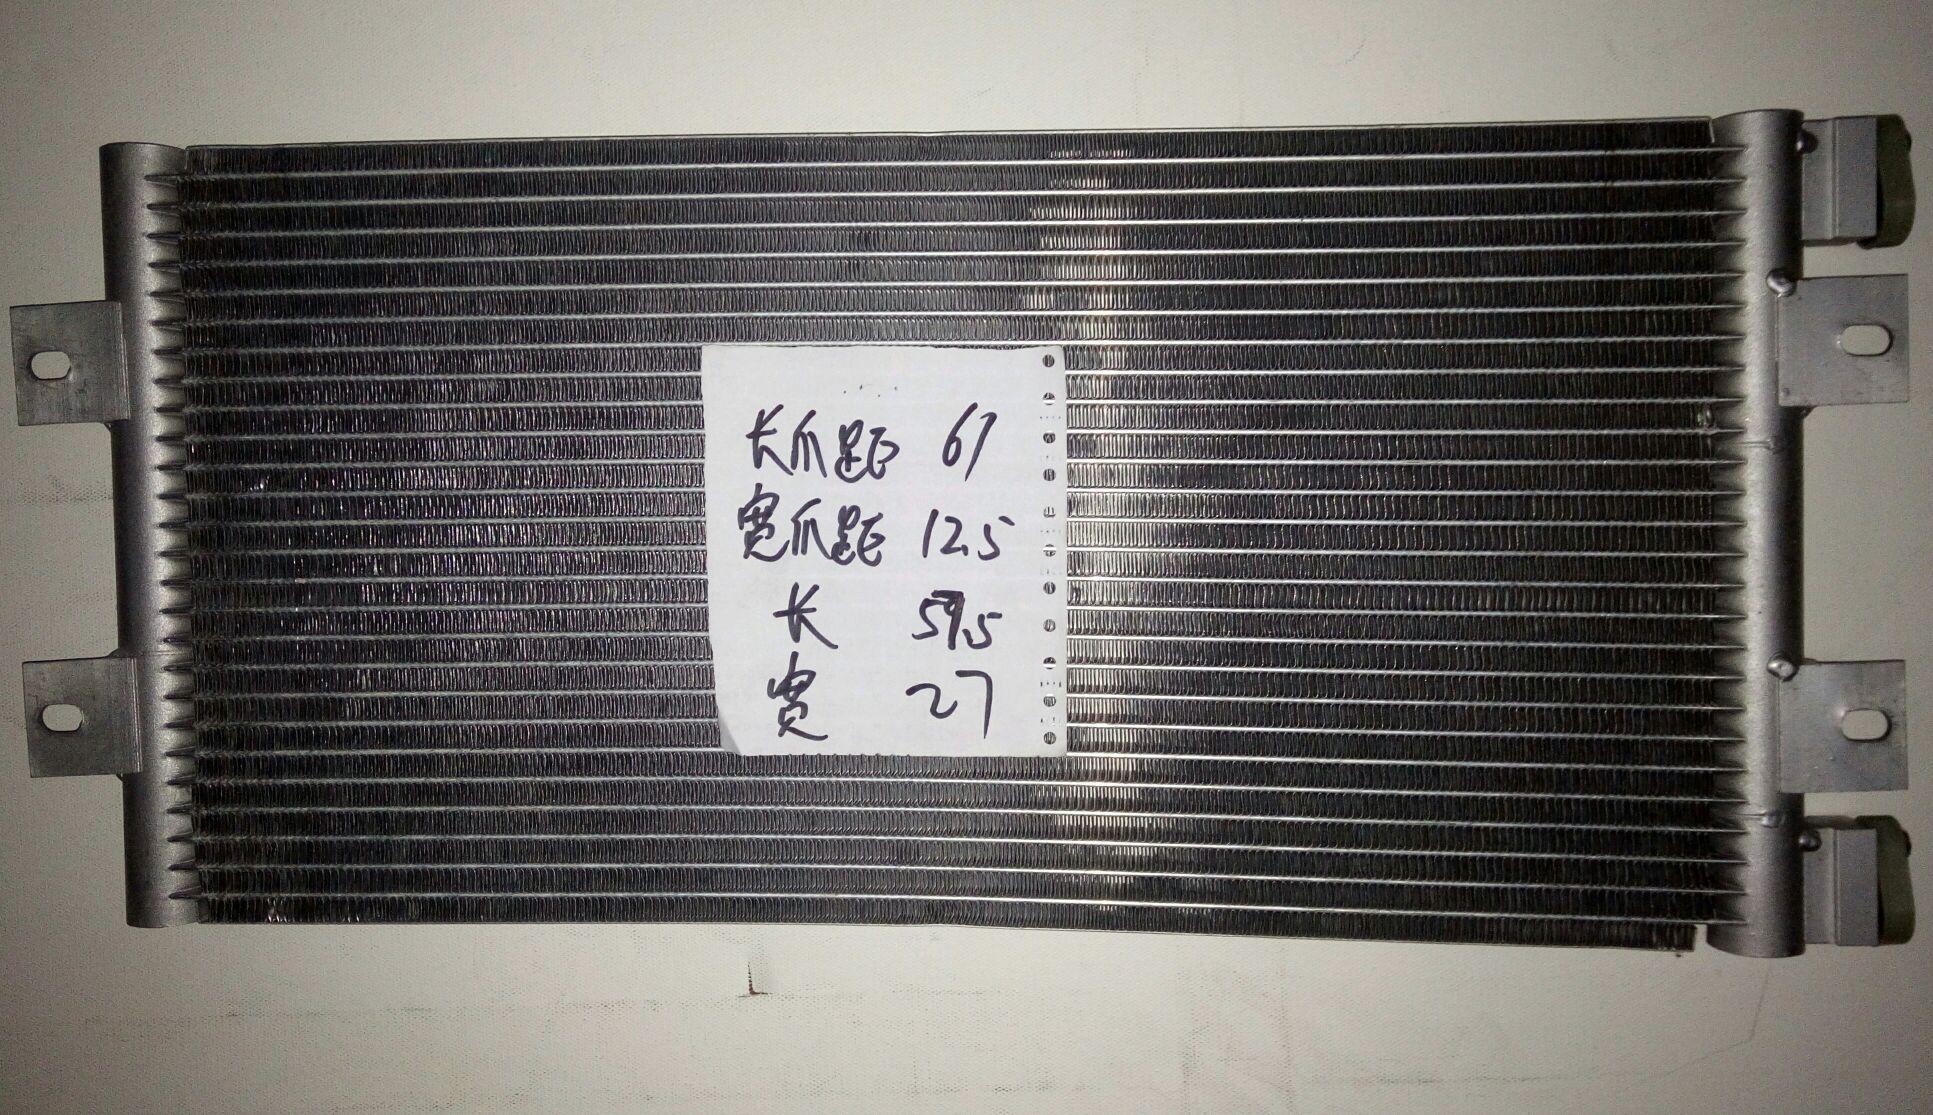 长爪距 61
宽爪距 12.5
长 59.5
宽 27